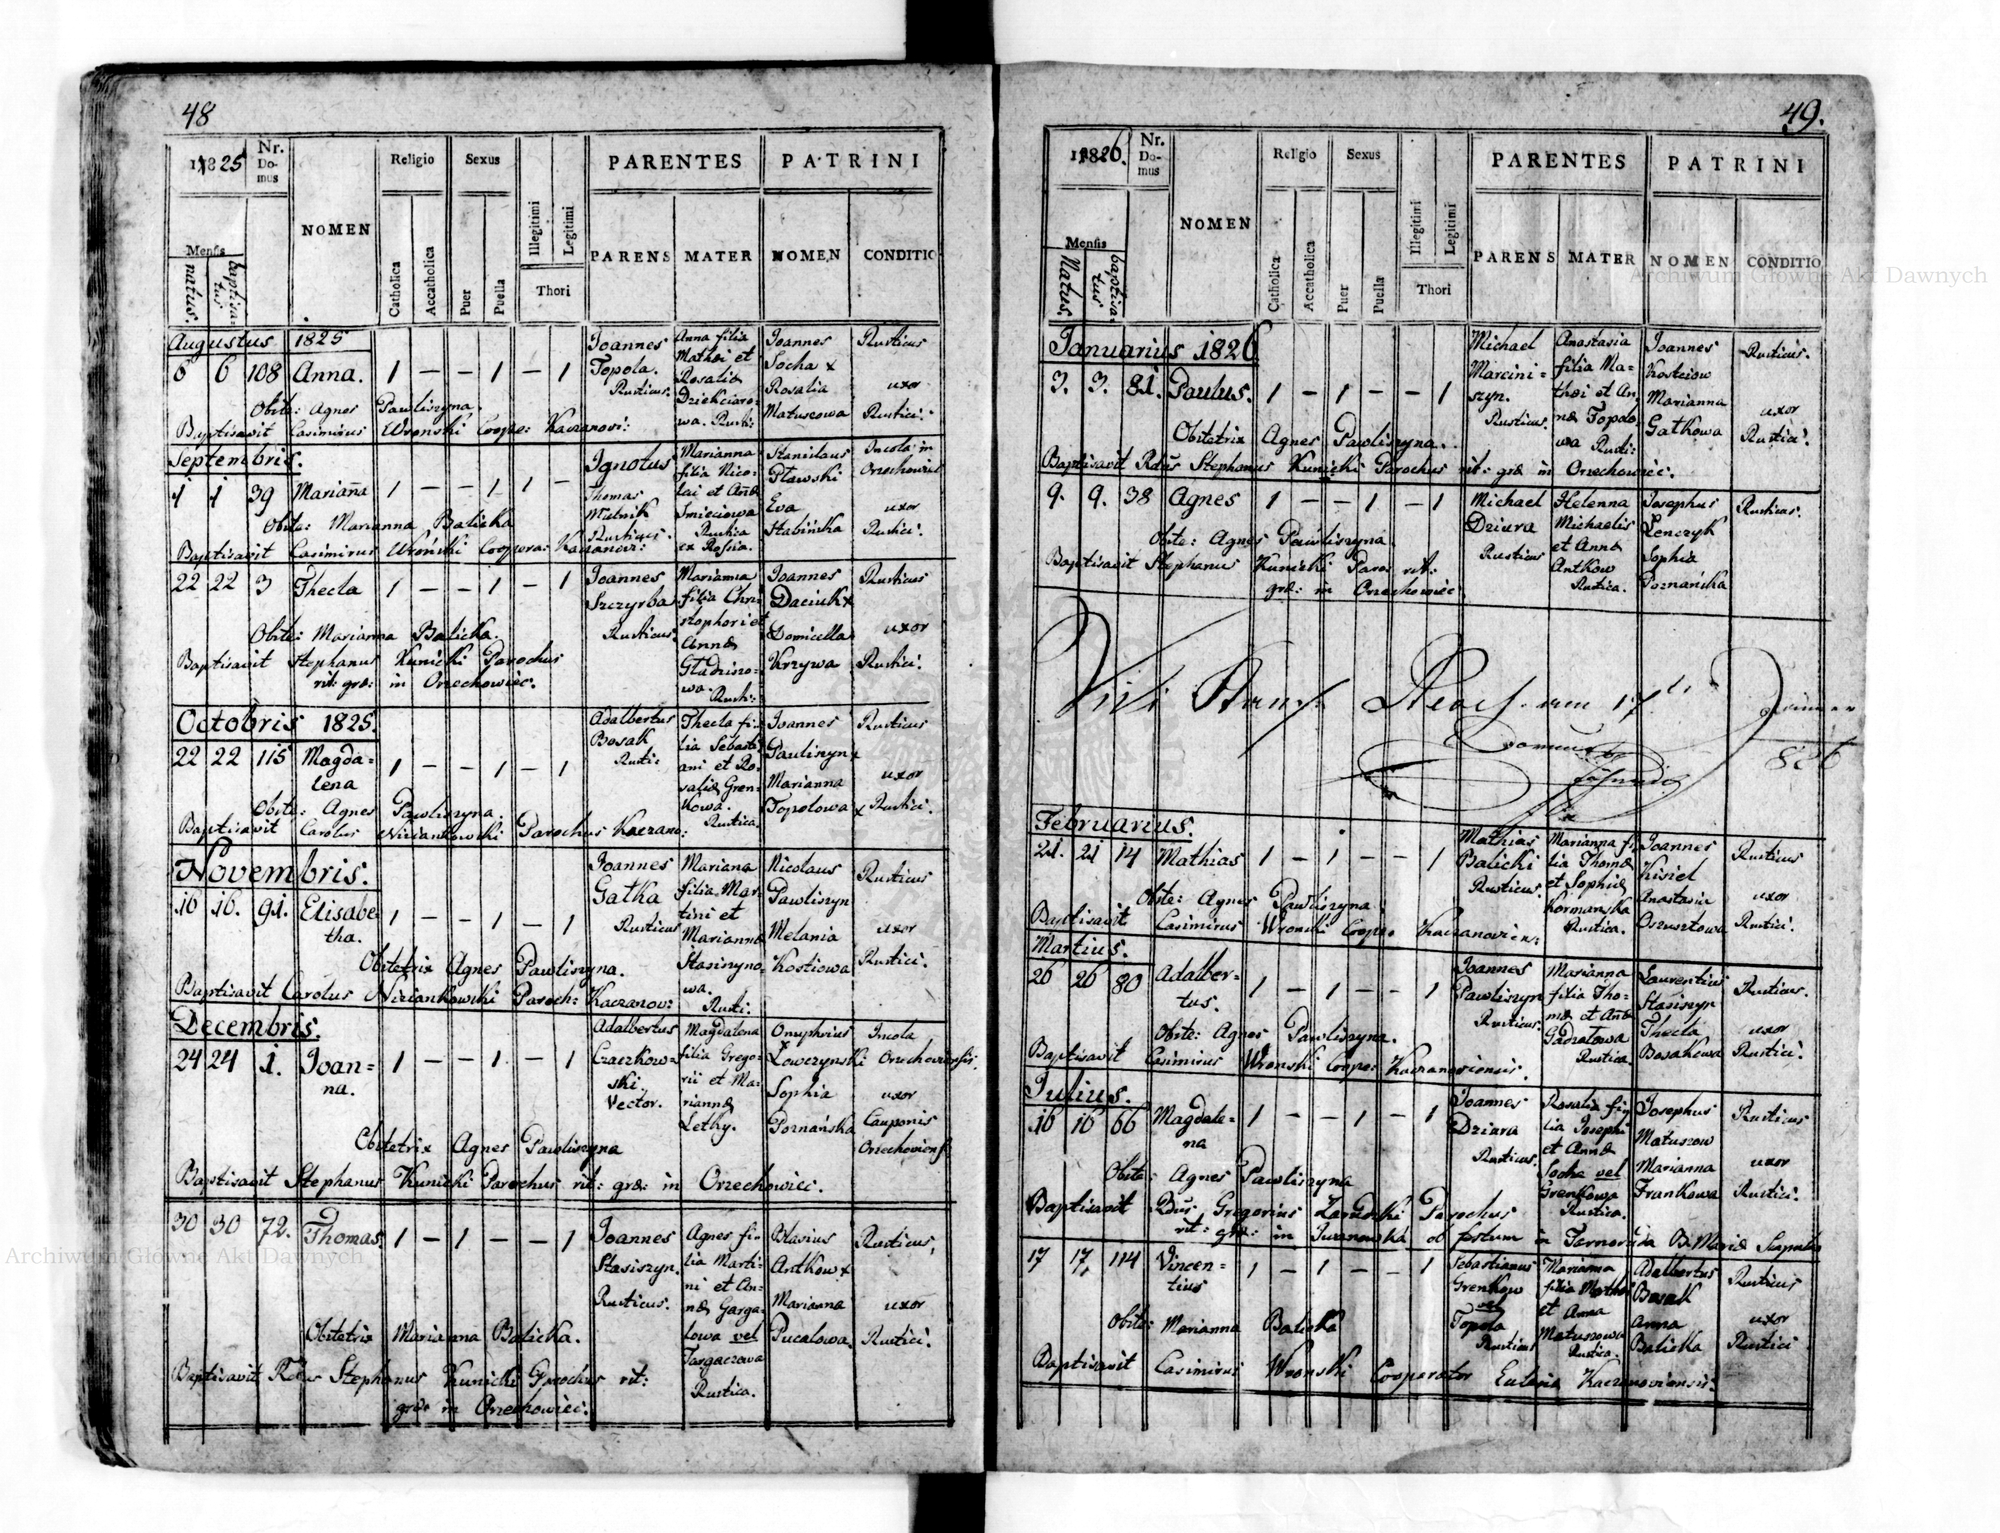 48
1825
Nr. Domus
NOMEN
Religio
Sexus
Illegitimi
Legitimi
Thori
PARENTES
PATRINI
Mensis
natus.
baptisatus
Catholica
Accatholica
Puer
Puella
PARENS
MATER
NOMEN
CONDITIO
Augustus 1825
6 6 108 Anna. 1 — — 1 — 1
Joannes Topola. Rusticus.
Anna filia Mathei et Rosaliæ
Joannes Socha x Rosalia Matuszowa
Rusticus uxor Rustici.
Obste: Agnes Pawliszyna.
Baptisavit Casimirus Wronski Coope: Kaczanovi:
Septembris.
1 1 39 Marianna 1 — — 1 1 —
Ignotus Thomas
Marianna filia Nicolai et Annæ Smieciowa Rustica ex Rossia.
Stanislaus Eva
Incola in uxor Rustici.
Obste: Marianna Balicka
Baptisavit Casimirus Wroński Coopera: Kaczanovi:
22 22 3 Thecla 1 — — 1 — 1
Joannes Szczyrba Rusticus.
Marianna filia Christophori et Annæ
Joannes Daciuk x Domicella Krzywa
Rusticus uxor Rustici.
Obste: Marianna Balicka.
Baptisavit Stephanus Kunicki Parochus
rit: græ: in Orzechowiec.
Octobris 1825.
22 22 115 Magdalena 1 — — 1 — 1
Adalbertus Bosak Rusti:
Thecla filia Sebastiani et Rosaliæ Grenkowa. Rustica.
Joannes Pauliszyn x Marianna Topolowa x
Rusticus uxor Rustici.
Obste: Agnes Pawliszyna.
Baptisavit Carolus Niziankowski Parochus Kaczano:
Novembris.
16 16. 91. Elisabetha. 1 — — 1 — 1
Joannes Gatka Rusticus
Mariana filia Martini et Mariannæ Stasiszynowa. Rusti.
Nicolaus Pawliszyn Melania Kostiowa
Rusticus uxor Rustici.
Obstetrix Agnes Pawliszyna.
Baptisavit Carolus Niziankowski Paroch: Kaczanov:
Decembris.
24 24 1. Joanna. 1 — — 1 — 1
Adalbertus Czaczkowski Vector.
Magdalena filia Gregorii et Mariannæ Lethy.
Onuphrius Łowczynski Sophia Poznańska
Incola Orzechoviensis. uxor Cauponis Orzechoviens:
Obstetrix Agnes Pawliszyna
Baptisavit Stephanus Kunicki Parochus rit: græ: in Orzechowiec.
30 30 72. Thomas. 1 — 1 — — 1
Joannes Stasiszyn. Rusticus.
Agnes filia Martini et Annæ Gargalowa vel Targaczowa Rustica.
Blasius Antkow x Marianna Pucalowa.
Rusticus, uxor Rustici.
Obstetrix Marianna Balicka.
Baptisavit Rdus Stephanus Kunicki Parochus rit:
græ: in Orzechowiec.
49.
1826.
Nr. Domus
NOMEN
Religio
Sexus
Illegitimi
Legitimi
Thori
PARENTES
PATRINI
Mensis
Natus.
baptisatus
Catholica
Accatholica
Puer
Puella
PARENS
MATER
NOMEN
CONDITIO
Januarius 1826
3. 3. 81. Paulus. 1 — 1 — — 1
Michael Marciniszyn. Rusticus.
Anastasia filia Mathei et Annæ Topolowa Rusti:
Joannes Kosteiow Marianna Gatkowa
Rusticus. uxor Rustici.
Obstetrix Agnes Pawliszyna.
Baptisavit Rdus Stephanus Kunicki Parochus rit: græ in Orzechowiec.
9. 9. 38 Agnes 1 — — 1 — 1
Michael Dziura Rusticus
Helenna Michaelis et Annæ Antkow Rustica.
Josephus Lenczyk Sophia Poznańska
Rusticus.
Obste: Agnes Pawliszyna.
Baptisavit Stephanus Kunicki Paros rit:
græ: in Orzechowiec:
Februarius.
21. 21 14 Mathias 1 — 1 — — 1
Mathias Balicki Rusticus.
Marianna filia Thomæ et Sophiæ Kormanska Rustica.
Joannes Kisiel Anastasia Oszustowa
Rusticus uxor Rustici.
Obste: Agnes Pawliszyna
Baptisavit Casimirus Wronski Coope: Kaczanovien:
Martius.
26 26 80 Adalbertus. 1 — 1 — — 1
Joannes Pawliszyn Rusticus.
Marianna filia Thomæ et Annæ Gadzalowa Rustica.
Laurentius Stasiszyn Thecla Bosakowa
Rusticus. uxor Rustici.
Obste: Agnes Pawliszyna.
Baptisavit Casimirus Wronski Coope: Kaczanoviensis.
Julius.
16 16 66 Magdalena 1 — — 1 — 1
Joannes Dziura Rusticus.
Rosalia filia Josephi et Annæ Socha vel Grenkowa Rustica.
Josephus Matuszow Marianna Frankowa
Rusticus uxor Rustici.
Obste: Agnes Pawliszyna
Baptisavit Gregorius Parochus
rit: græ: in ob festum in Tarnoruda B. Mariæ
17 17, 114 Vincentius 1 — 1 — — 1
Sebastianus Grenkow vel Topola Rusticus
Marianna filia et Anna Matuszowa Rustica.
Adalbertus Bosak Anna Balicka
Rusticus uxor Rustici
Obste: Marianna Balicka
Baptisavit Casimirus Wronski Cooperator Kaczanoviensis.
Archiwum Główne Akt Dawnych
Archiwum Główne Akt Dawnych